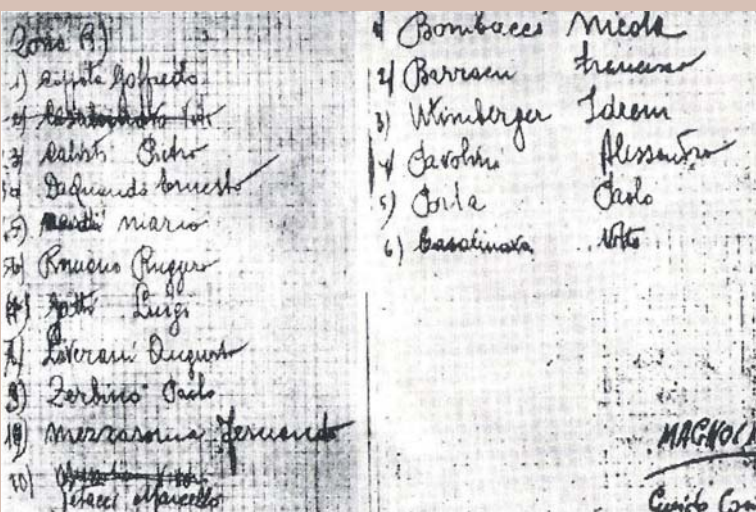 Zona A)
1) Coppola Goffredo
3) Calisti Pietro
Daquanno Ernesto
5) Mario
6) Romano Ruggero
7) Gatti Luigi
Liverani Augusto
9) Zerbino Paolo
10) Mezzasoma Fernando
10)
Petacci Marcello
1) Bombacci Nicola
2) Barracu Francesco
3) Utimberger Idreno
4) Pavolini Alessandro
5) Porta Paolo
6) Casalinovo Vito
MAGNOCA
Guido Con